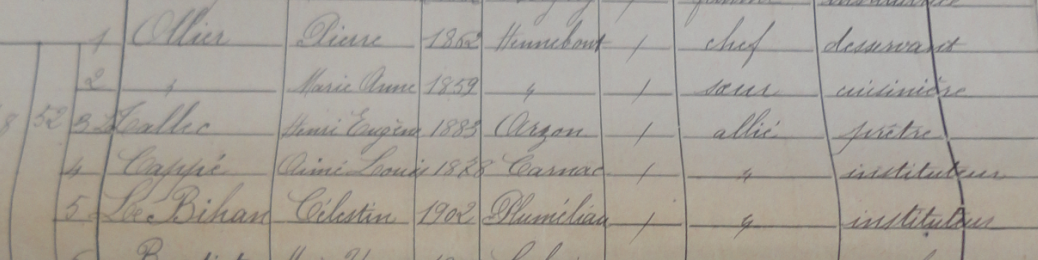 1 Ollier Pierre 1862 Hennebont / chef desservant
2 " Marie Anne 1859 " / sœur cuisinière
52 3 Hallec Henri Eugène 1883 Arzon / allié prêtre
4 Cappé Aimé Louis 1878 Carnac / " instituteur
5 Le Bihan Célestin 1902 Pluméliau / " instituteur